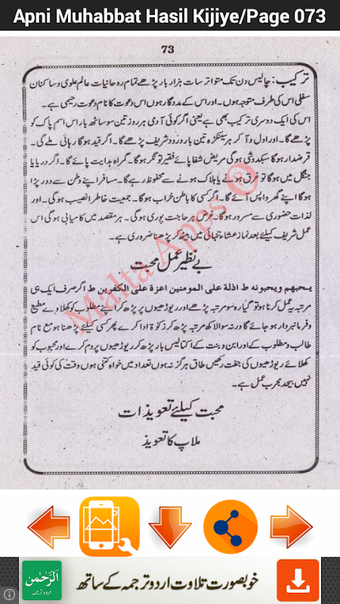 Apni Muhabbat Hasil Kijiye/Page 073
73
ترکیب: چالیس دن تک متواتر سات ہزار بار پڑھے تمام روحانیات عالم علوی و ساکنان
سفلی اس کی طرف متوجہ ہوں۔ اور اس کے مددگار ہوں اس دعوت کا نام دعوت رحیمی ہے۔
اس کی ایک دوسری ترکیب بھی ہے یعنی اگر کوئی آدمی ہر روز تین سو ساٹھ بار اس اسم پاک کو
پڑھے گا۔ اور اول و آخر تین بار درود شریف پڑھے گا۔ اگر قید ہو گا رہائی ملے گی۔
قرضدار ہو گا سبکدوشی ہو گی مریض شفا پائے فقیر تونگر ہو گا۔ گمراہ ہدایت پائے گا۔ اگر دریا یا
جنگل میں ہو گا تو غرق ہونے یا ہلاک ہونے سے محفوظ رہے گا۔ مسافر اپنے وطن سے دور پڑا
ہو گا اپنے گھر واپس آئے گا۔ اگر کسی کا باطن خراب ہو گا۔ جمعیت خاطر انصاب ہو گی۔
لذات حضوری سے مسرور ہو گا۔ غرض ہر حاجت پوری ہو گی۔ ہر مقصد میں کامیابی ہو گی اس
عمل شریف کیلئے بعد نماز عشاء تنہائی میں بیٹھ کر پڑھنا ضروری ہے۔
بے نظیر عمل محبت
یحبھم ویحبونہ ط اذلة علی المومنین اعزة علی الکفرین ط اگر صرف ایک ہی
مرتبہ یہ عمل کرنا ہو تو گیارہ سو مرتبہ پڑھے اور ریوڑیوں پر دم کر کے اپنے مطلوب کو کھلاوے مطیع
و فرمانبردار ہو جائے گا ورنہ سوا لاکھ مرتبہ پڑھ کر زکوة ادا کرے پھر کسی کیلئے پڑھنا ہو مع نام
طالب و مطلوب کے اور ابن و بنت کے اکتالیس بار پڑھ کر ریوڑیوں پر دم کرے اور محبوب کو
کھلائے ریوڑیوں کی جفت رکھیں طاق ہرگز نہ ہوں تعداد میں خواہ کتنی ہوں وقت کی کوئی قید
نہیں بیحد مجرب عمل ہے۔
محبت کیلئے تعویذات
ملاپ کا تعویذ
Malta Apps ©
الرَّحْمٰن
اردو ترجمہ
خوبصورت تلاوت اردو ترجمہ کے ساتھ